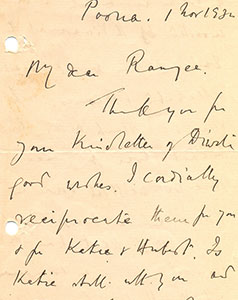 Poona. 1 Nov 192
My dear Rangee.
Thank you for
your kind letter of Diwali
good wishes. I cordially
reciprocate them for you
& for Katie & Hubert. Is
Katie still with you and